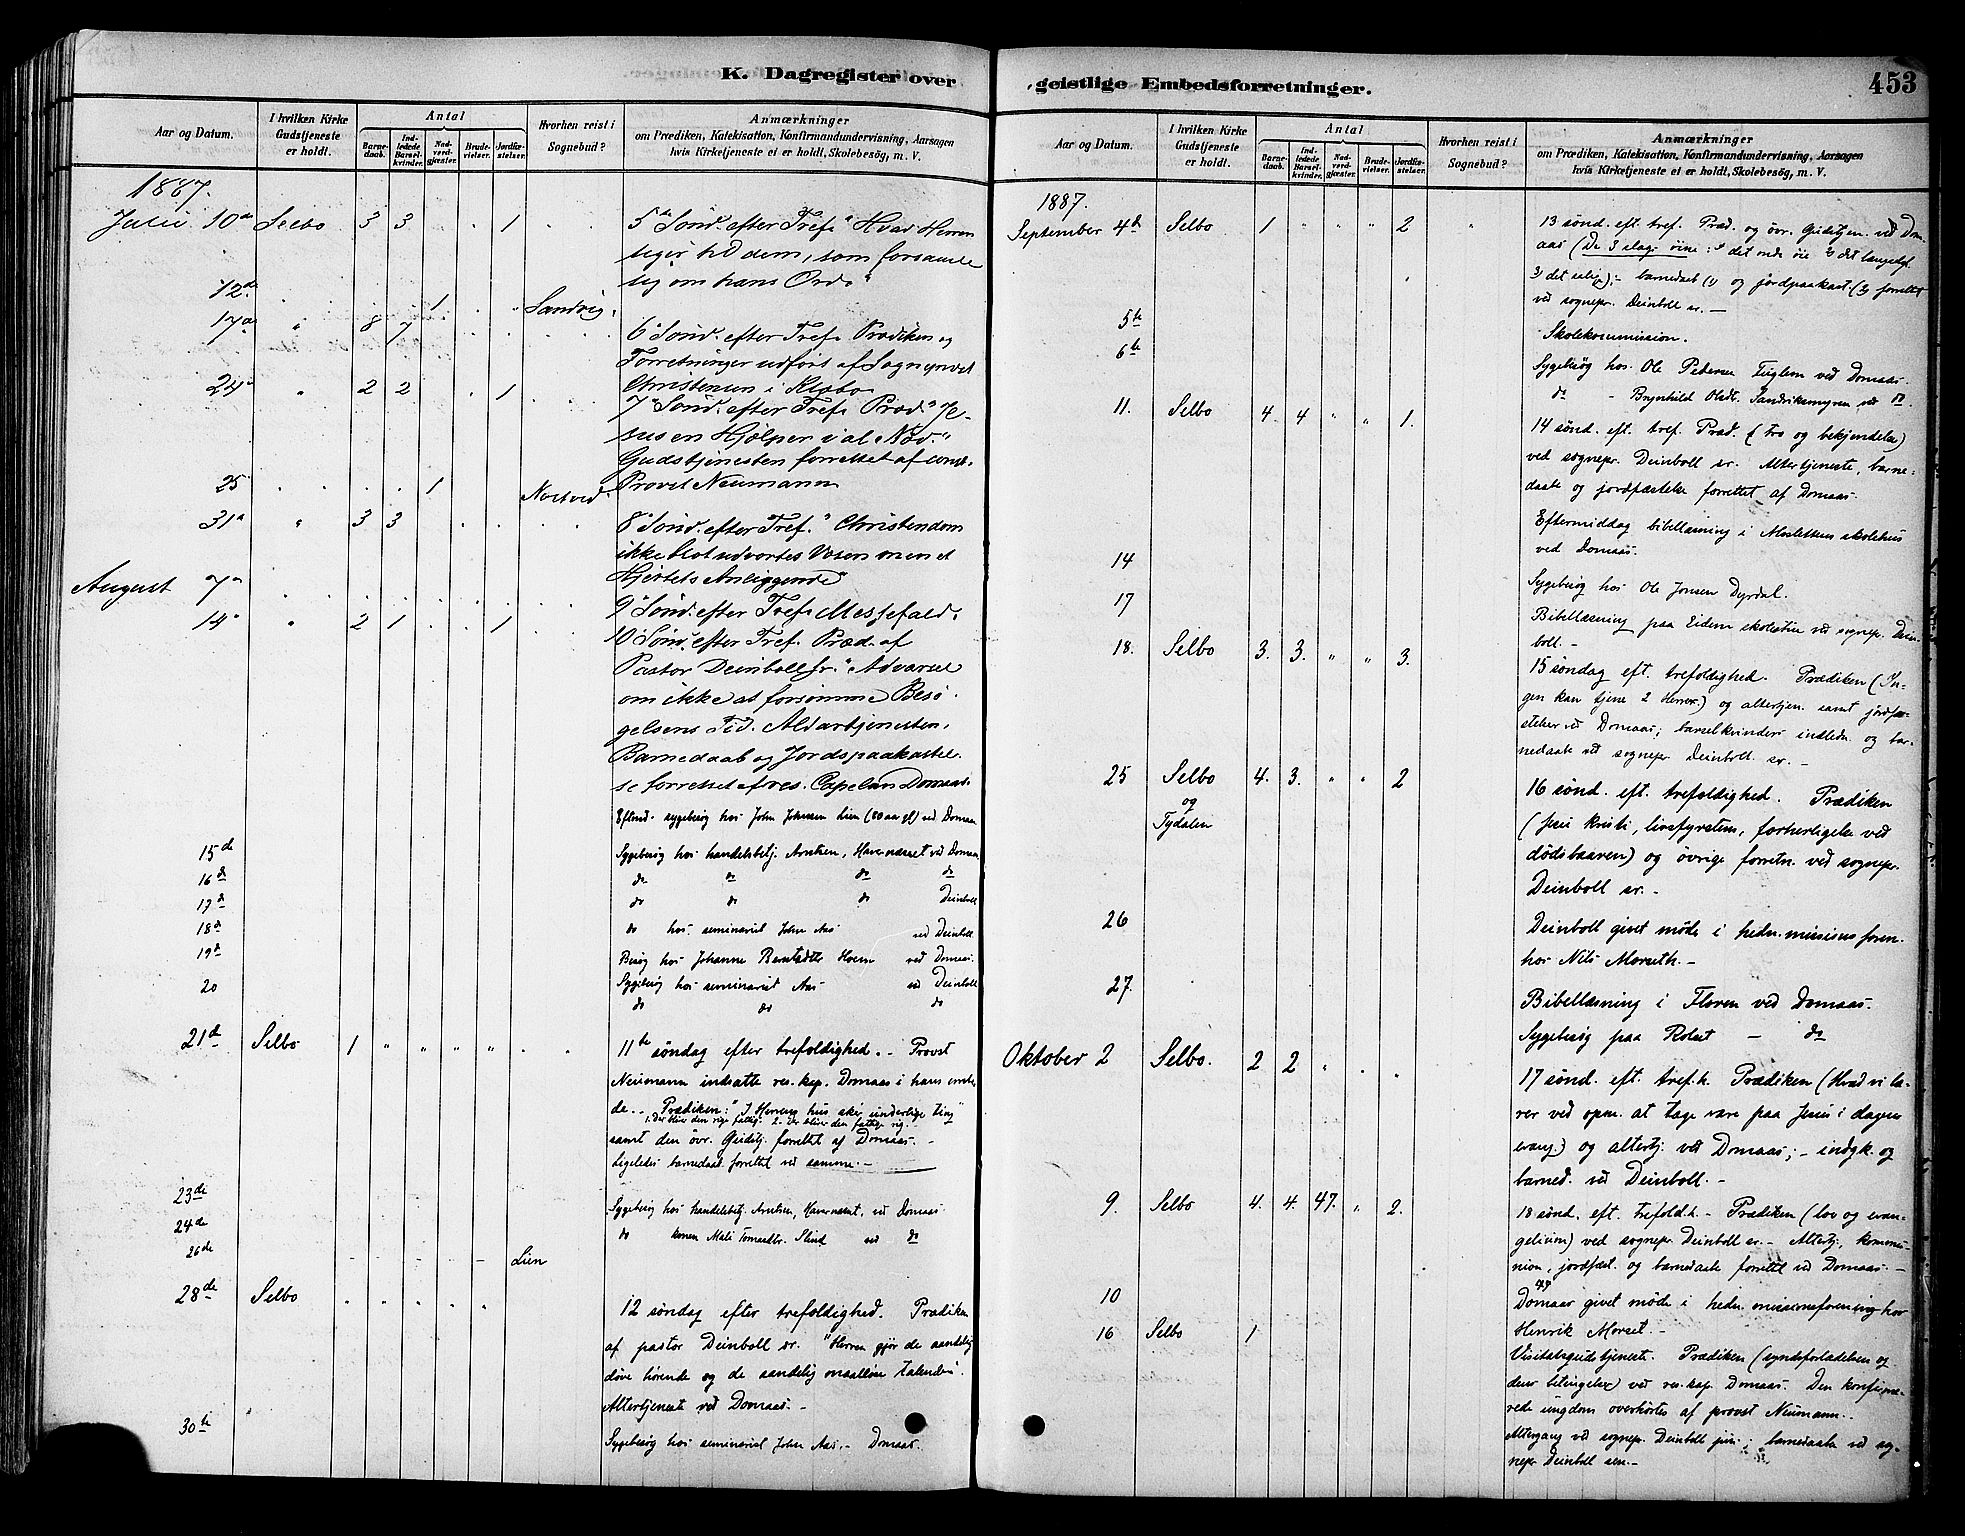 K. Dagregister over
Aar og Datum.
I hvilken Kirke Gudstjeneste er holdt.
Antal
Barnedaab.
Indledede Barselkvinder.
Nadverdgjæster.
Brudevielser.
Jordfæstelser.
Hvorhen reist i Sognebud?
Anmærkninger
om Prædiken, Katekisation, Konfirmandundervisning, Aarsagen
hvis Kirketjeneste ei er holdt, Skolebesøg, m. V.
1887.
Julii 10de Selbo 3 3 1 5te Sønd. efter Tref. "Hvad Herren
siger til dem, som forsamle
sig om hans Ord."
12te 1 Sandvig
17de " 8 7 6 Sønd. efter Tref. Prædiken og
Forretninger udført af Sogneprest
Christensen i Klæbo
24 " 2 2 1 7 Sønd. efter Tref. Præd. "Je-
sus en Hjælper i al Nød."
Gudstjenesten forrettet af const.
Provst Neumann
25 1
31 " 3 3 8 Sønd. efter Tref. "Christendom
ikke blot udvortes Væsen men et
Hjertets Anliggende"
August 7 9 Sønd. efter Tref. Messefald.
14 " 2 1 1 10 Sønd. efter Tref. Præd. af
Pastor Deinboll sr. "Advarsel
om ikke at forsømme Besø-
gelsens Tid. Altartjenesten,
Barnedaab og Jordspaakastel-
se forrettet af res. Capelan Domaas.
Eftmd. sygebesøg hos John Johnsen Lien (80 aar gl) ved Domaas
15de Sygebesøg hos handelsbetj. Arntsen, Havernæsset ved Domaas
16de do do do do
17de do do do Deinboll
18de do hos seminarist John Aas ved Deinboll
19de Besøg hos Johanne Berntsdtr Hoem ved Domaas.
20 Sygebesøg hos seminarist Aas ved Deinboll
do do do
21de Selbo 1 " " " " 11te søndag efter trefoldighed. - Provst
Neumann indsatte res. kap. Domaas i hans embe-
de. - Prædiken: "I Herrens hus sker underlige ting"
1. Der bliver den rige fattig. 2. Der bliver den fattige rig.
samt den övr. Gudstj. forrettet af Domaas. -
Ligeledes barnedaab forrettet ved samme. -
23de Sygebesøg hos handelsbetj. Arntsen, Havernæsset, ved Domaas
24de do konen Mali Tomasdtr. Slind ved do
26de Lien
28de Selbo " " " " " 12 søndag efter trefoldighed. Prædiken
af pastor Deinboll sr. "Herren gjør de aandelig
døve hørende og de aandelig maalløse talende".
Altertjeneste ved Domaas. -
30te Sygebesøg hos seminarist John Aas. - Domaas.
geistlige Embedsforretninger.
453
Aar og Datum.
I hvilken Kirke Gudstjeneste er holdt.
Antal
Barnedaab.
Indledede Barselkvinder.
Nadverdgjæster.
Brudevielser.
Jordfæstelser.
Hvorhen reist i Sognebud?
Anmærkninger
om Prædiken, Katekisation, Konfirmandundervisning, Aarsagen
hvis Kirketjeneste ei er holdt, Skolebesøg, m. V.
1887.
September 4de Selbo 1 " " " 2 13 sönd. eft. tref. Præd. og övr. Gudstjen. ved Dom-
aas (De 3 slags öine: 1) det onde öie 2) det
3) det - barnedaab (1) og jordpaakast. (2) forrettet
ved sognepr. Deinboll sr. -
5te Skolekommission.
6te Sygebesøg hos Ole Pedersen Fuglem ved Domaas.
do - Brynhild Olsdtr. ved do.
11. Selbo 4. 4 " " 1. 14 sönd. eft. tref. Præd. (Tro og bekjendelse)
ved sognepr. Deinboll sr. Altertjeneste, barne-
daab og jordfæstelse forrettet af Domaas.
Eftermiddag bibellæsning i Moslettens skolehus
ved Domaas.
14 Sygebesøg hos Ole Jonsen Dyrdal.
17 Bibellæsning paa Eidem skolestue ved sognepr. Dein-
boll. -
18. Selbo 3. 3. " " 3. 15 söndag eft. trefoldighed. Prædiken (In-
gen kan tjene 2 Herrer) og altertjen. samt jordfæ-
stelser ved Domaas; barselkvinders indledn. og bar-
nedaab ved sognepr. Deinboll sr. -
25 Selbo og Tydalen 4. 3. " " 2 16 sönd. eft. trefoldighed. Prædiken
(Jesu Kristi, livsfyrstens, forherligelse ved
dödsbaaren) og övrige forretn. ved sognepr.
Deinboll sr. -
26 Deinboll givet möde i hedn. missions foren.
hos Nils Morseth. -
27. Bibellæsning i Floren ved Domaas.
Sygebesøg paa Rolset - do
Oktober 2 Selbo. 2 2 " " " 17 sönd. eft. tref.h. Prædiken (Hvad vi læ-
rer ved opm. at tage vare paa Jesus i dagens
evang.) og altertj. ved Domaas; - indgk. og
barned. ved Deinboll. -
9. Selbo 4. 4. 47. " 2. 18 sönd. eft. trefold.h. - Prædiken (lov og evan-
gelium) ved sognepr. Deinboll sr. - Altertj., kommu-
nion, jordfæst. og barnedaab forrettet ved Domaas. -
10 Domaas givet möde i hedn. missionsforening hos
Henrik Morset. -
16 Selbo 1 Visitatsgudstjeneste. Prædiken (syndsforladelsen og
dens betingelser) ved res. kap. Domaas. Den konfirme-
rede ungdom overhørtes af provst Neumann.
Altergang ved sognepr. Deinboll jun.; barnedaab ved sog-
nepr Deinboll sen. -